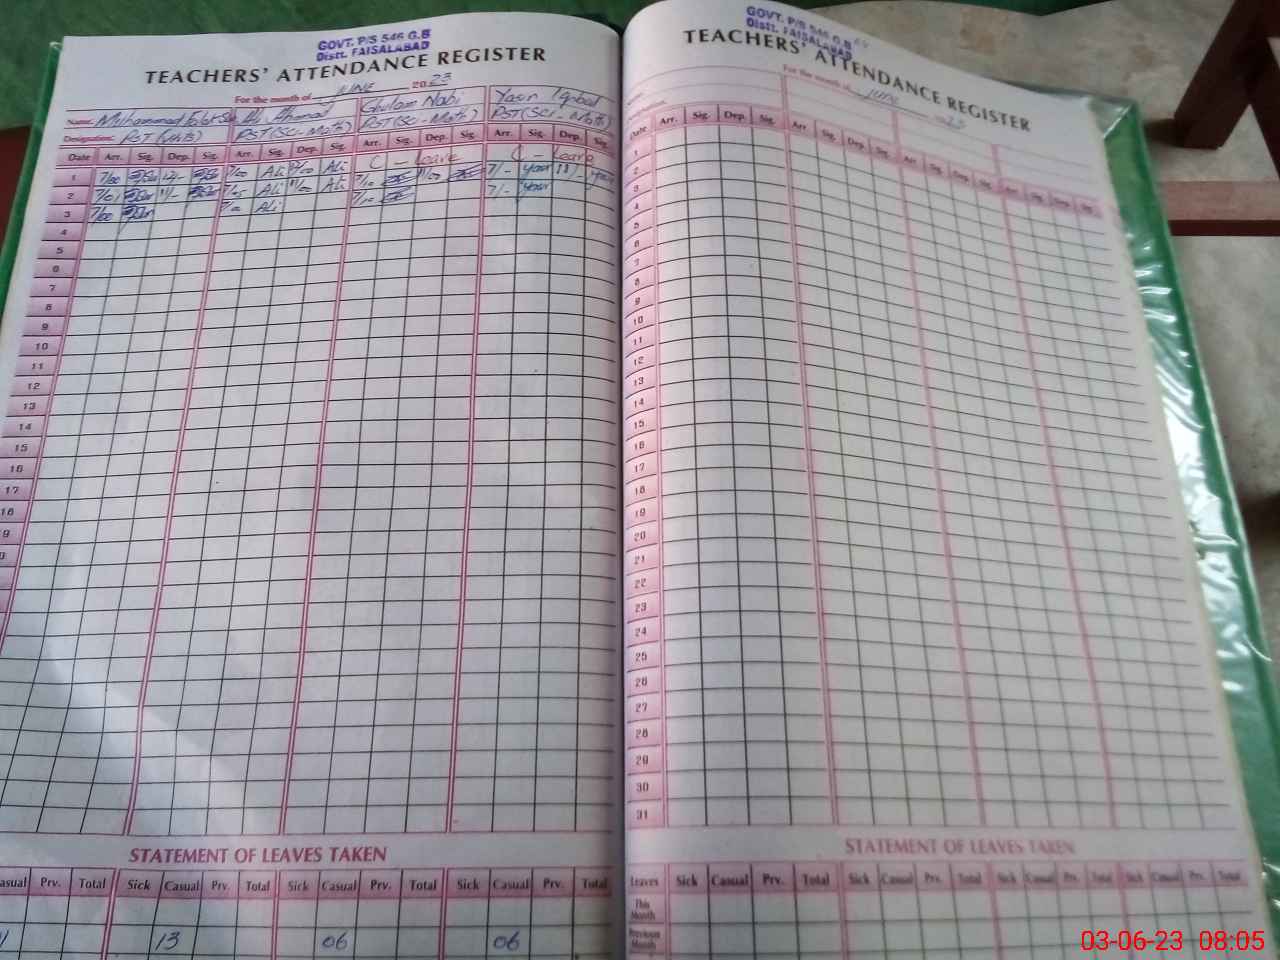 GOVT. P/S 546 G.B
Distt. FAISALABAD
TEACHERS' ATTENDANCE REGISTER
For the month of JUNE 2023
Name: Muhammad Ali Ahmad Ghulam Nabi Yasir Iqbal
Designation: PST PST (Sci-Math) PST (Sci-Math) PST (Sci-Math)
Date Arr. Sig. Dep. Sig. Arr. Sig. Dep. Sig. Arr. Sig. Dep. Sig. Arr. Sig. Dep. Sig.
1 7/00 12/- 7/00 Ali 12/00 Ali C - Leave C - Leave
2 11/- Ali 11/00 Ali 7/10 11/00 7/- Yasir 11/-
3 7/00 7/00 Ali 7/10 7/- Yasir
4
5
6
7
8
9
10
11
12
13
14
15
16
17
18
9
0
STATEMENT OF LEAVES TAKEN
asual Prv. Total Sick Casual Prv. Total Sick Casual Prv. Total Sick Casual Prv. Total
13 06 06
GOVT. P/S 546 G.B
Distt. FAISALABAD
TEACHERS' ATTENDANCE REGISTER
For the month of JUNE 2023
Date Arr. Sig. Dep. Sig. Arr. Sig. Dep. Sig. Arr. Sig. Dep. Sig. Arr. Sig. Dep. Sig.
1
2
3
4
5
6
7
8
9
10
11
12
13
14
15
16
17
18
19
20
21
22
23
24
25
26
27
28
29
30
31
STATEMENT OF LEAVES TAKEN
Leaves Sick Casual Prv. Total Sick Casual Prv. Total Sick Casual Prv. Total Sick Casual Prv. Total
This
Month
Previous
Month
03-06-23 08:05